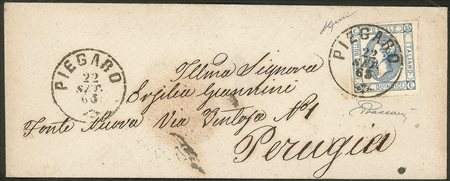 PIEGARO
22
SET
63
PIEGARO
22
SET
63
Illma Signora
Ersilia Giannini
Fonte Nuova Via Ventosa N° 1
Perugia